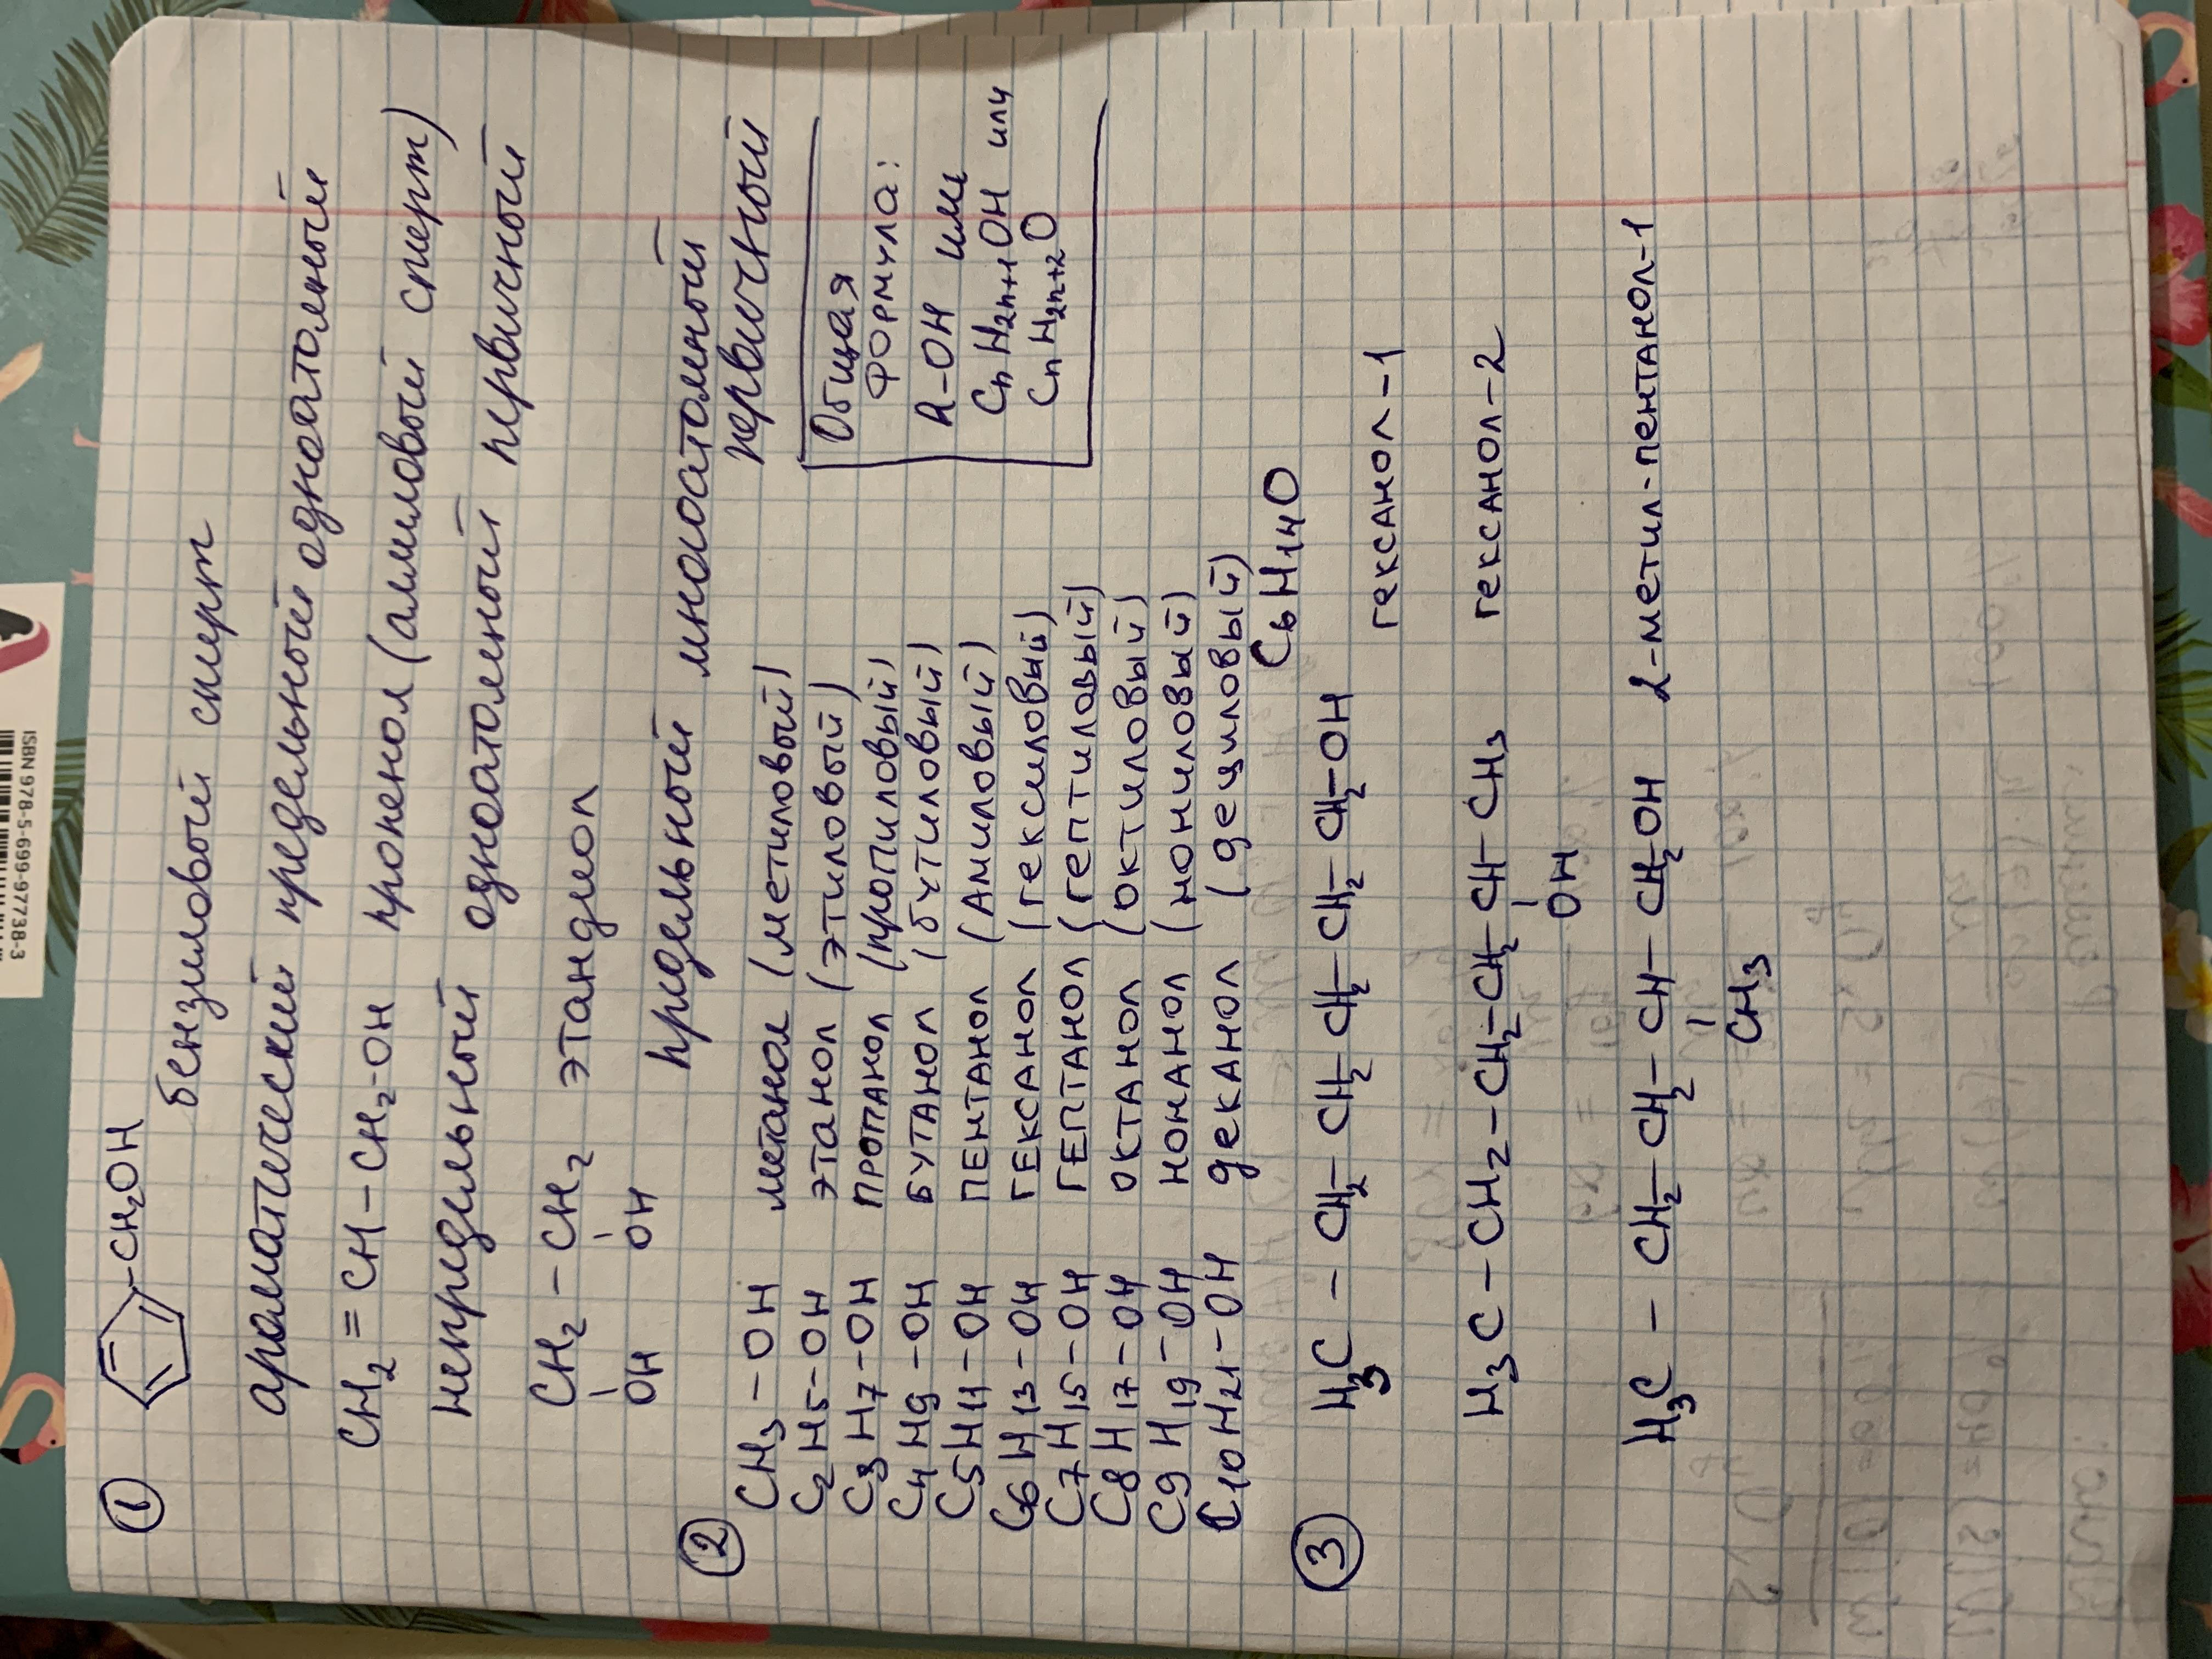 ① -CH₂OH
бензиловый спирт
ароматический предельный одноатомный
CH₂ = CH - CH₂-OH пропенол (аммловый спирт)
непредельный одноатомный первичный
CH₂ - CH₂ этандиол
OH OH
предельный многоатомный
первичный
② CH₃ - OH метанол (метиловый)
C₂H₅-OH этанол (этиловый)
C₃H₇-OH пропанол (пропиловый)
C₄H₉-OH бутанол (бутиловый)
C₅H₁₁-OH пентанол (Амиловый)
C₆H₁₃-OH гексанол (гексиловый)
C₇H₁₅-OH гептанол (гептиловый)
C₈H₁₇-OH октанол (октиловый)
C₉H₁₉-OH нонанол (нониловый)
C₁₀H₂₁-OH деканол (дециловый)
Общая
формула:
R-OH или
CnH₂n₊₁OH или
CnH₂n₊₂O
C₆H₁₄O
③ H₃C - CH₂ - CH₂ - CH₂ - CH₂ - CH₂ - OH гексанол-1
H₃C - CH₂ - CH₂ - CH₂ - CH - CH₃ гексанол-2
OH
H₃C - CH₂ - CH₂ - CH - CH₂OH 2-метил-пентанол-1
CH₃
ISBN 978-5-699-97738-3